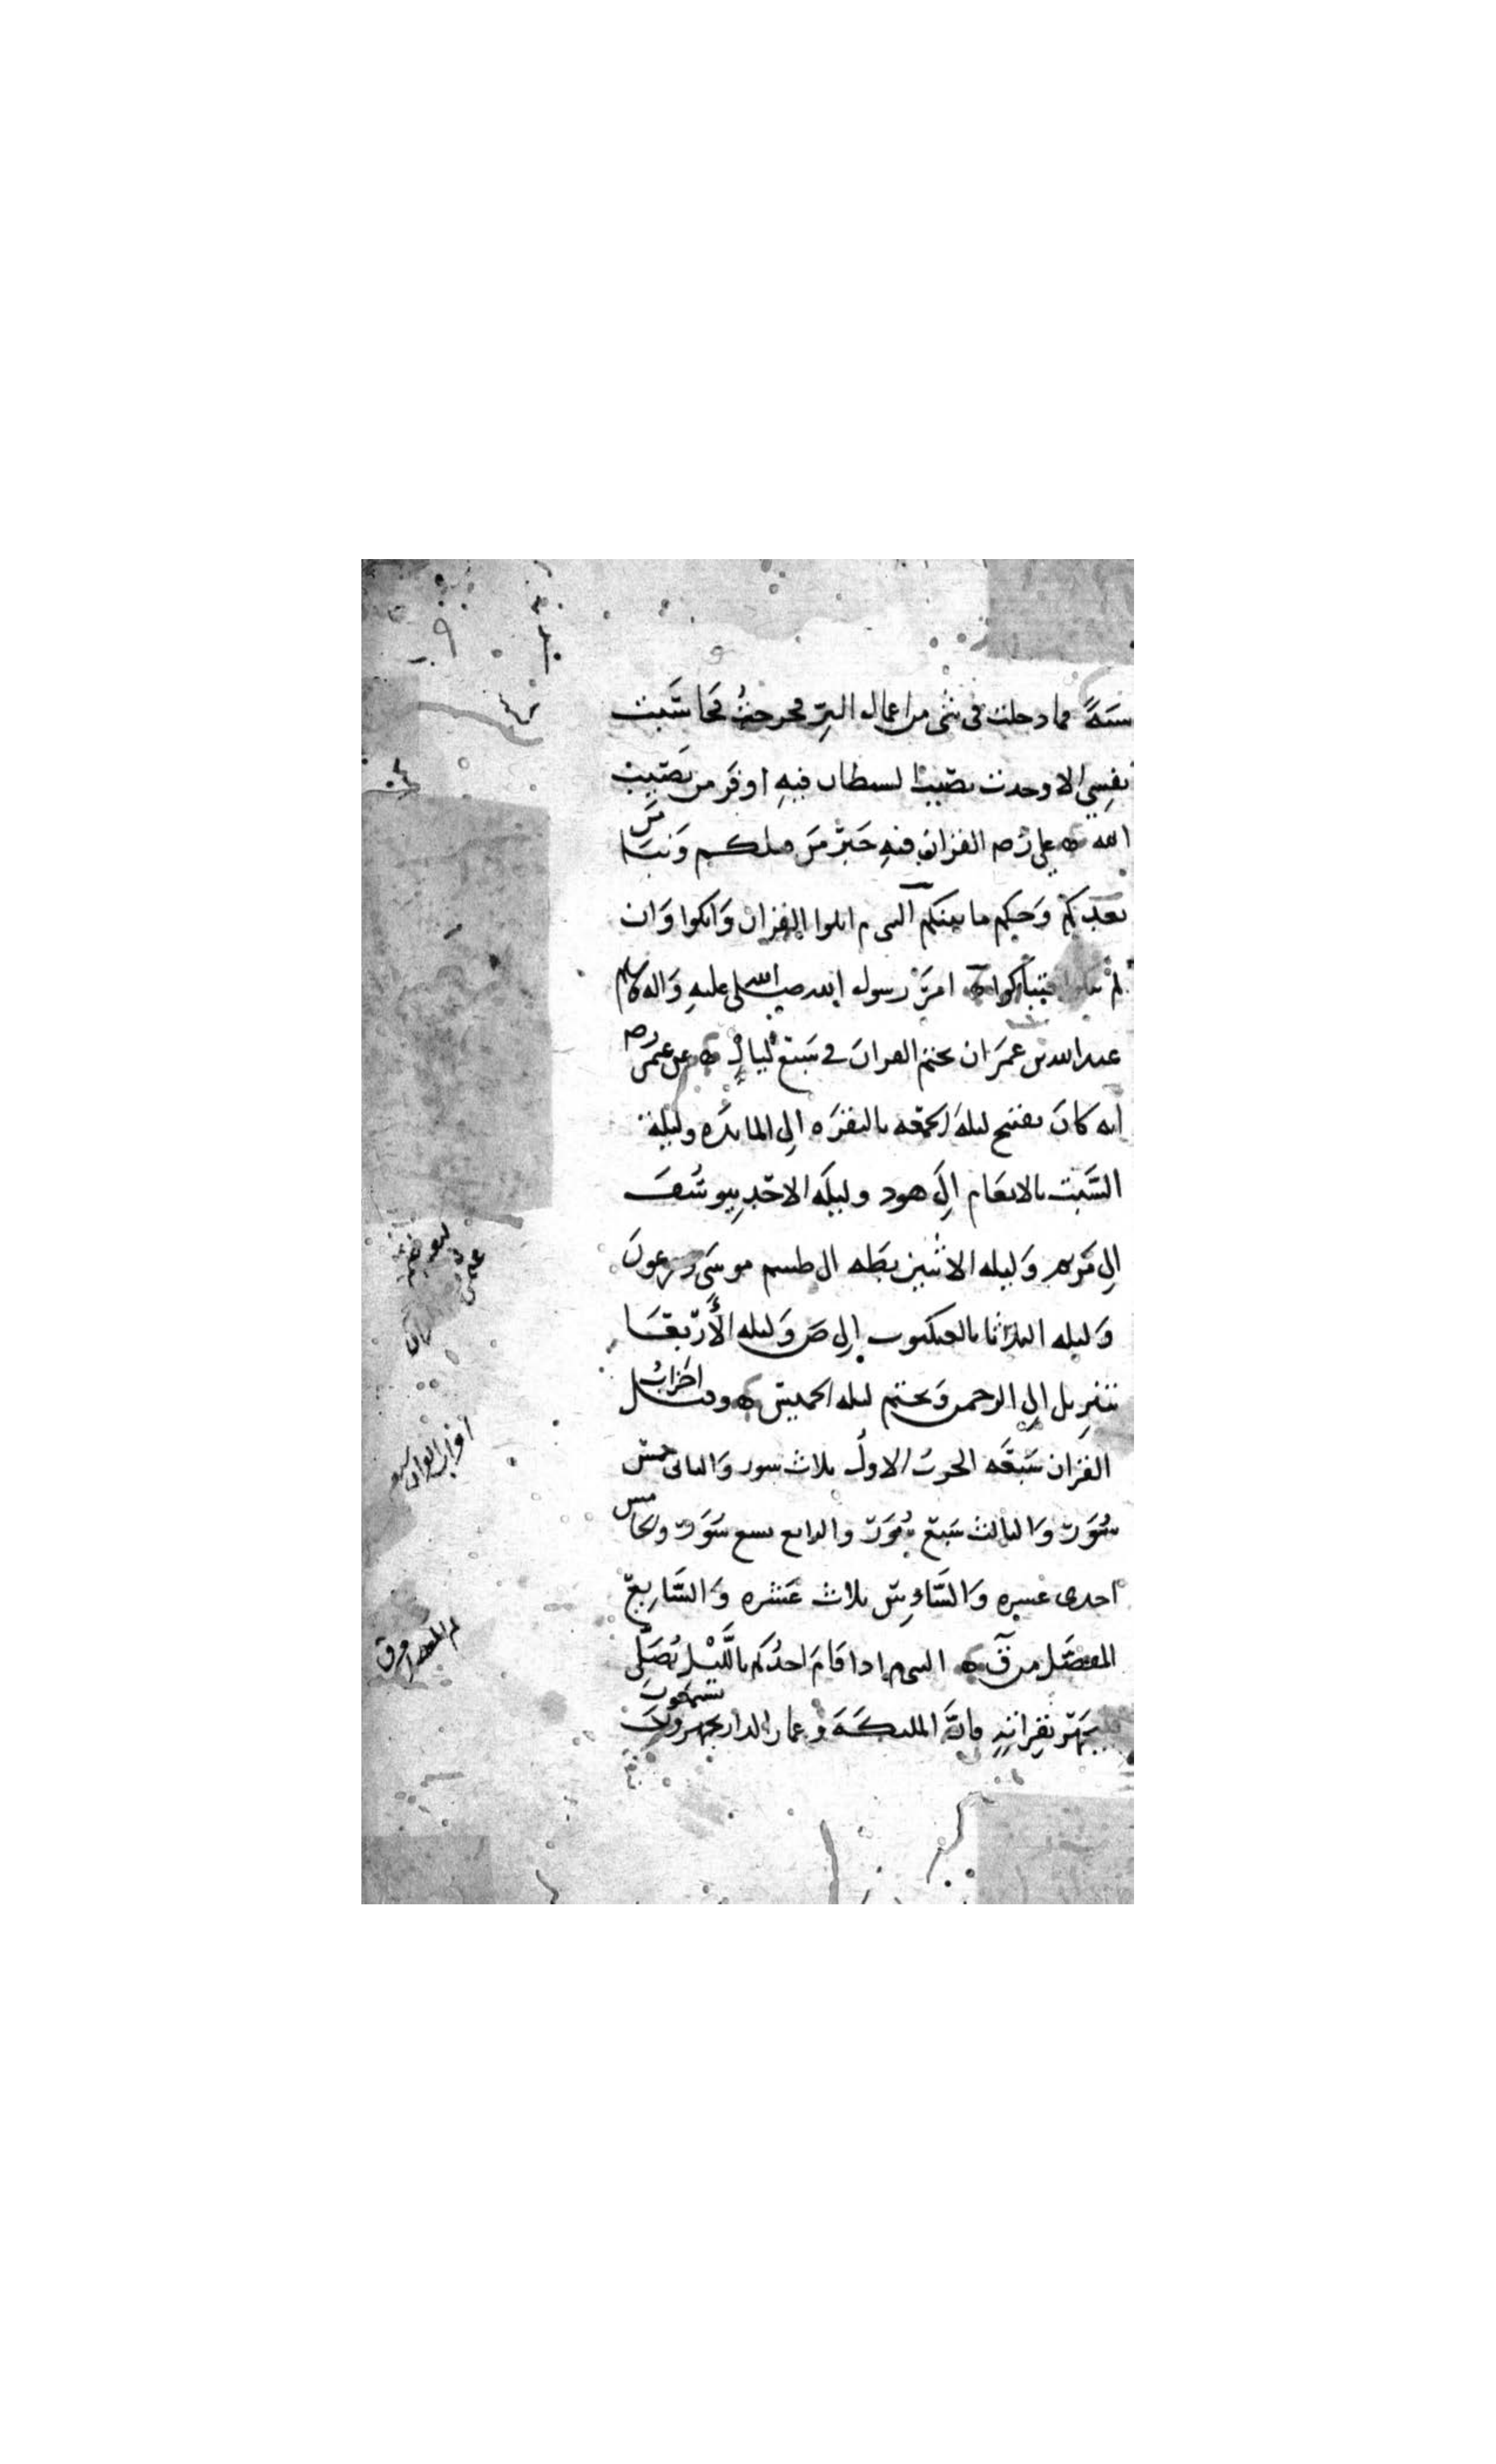 سنة فما دخلت في شي من اعمال البر فخرجت فحاسبت
نفسي الا وجدت نصيب الشيطان فيه اوفر من نصيب
الله علي رضه القران فيه خبر من قبلكم ونبا من
بعدكم وحكم ما بينكم النبي م اتلوا القران وابكوا وان
لم تبكوا فتباكوا امر رسول الله صلى الله عليه واله وسلم
عبد الله بن عمر ان يختم القران في سبع ليال عن عمر رضه
انه كان يفتتح ليلة الجمعه بالبقره الى المائده وليلة
السبت بالانعام الى هود وليله الاحد بيوسف
الى مريم وليله الاثنين بطه الى طسم موسى وفرعون
وليله الثلاثا بالعنكبوت الى ص وليله الأربعا
بتنزيل الى الرحمن ويختم ليله الخميس وقيل احزاب
القران سبعه الحزب الاول ثلاث سور والثاني خمس
سور والثالث سبع سور والرابع تسع سور والخامس
احدى عشره والسادس ثلاث عشره والسابع
المفصل من ق النبي م اذا قام احدكم بالليل يصلي
فليجهر بقراته فان الملئكة وعمار الدار يستمعون